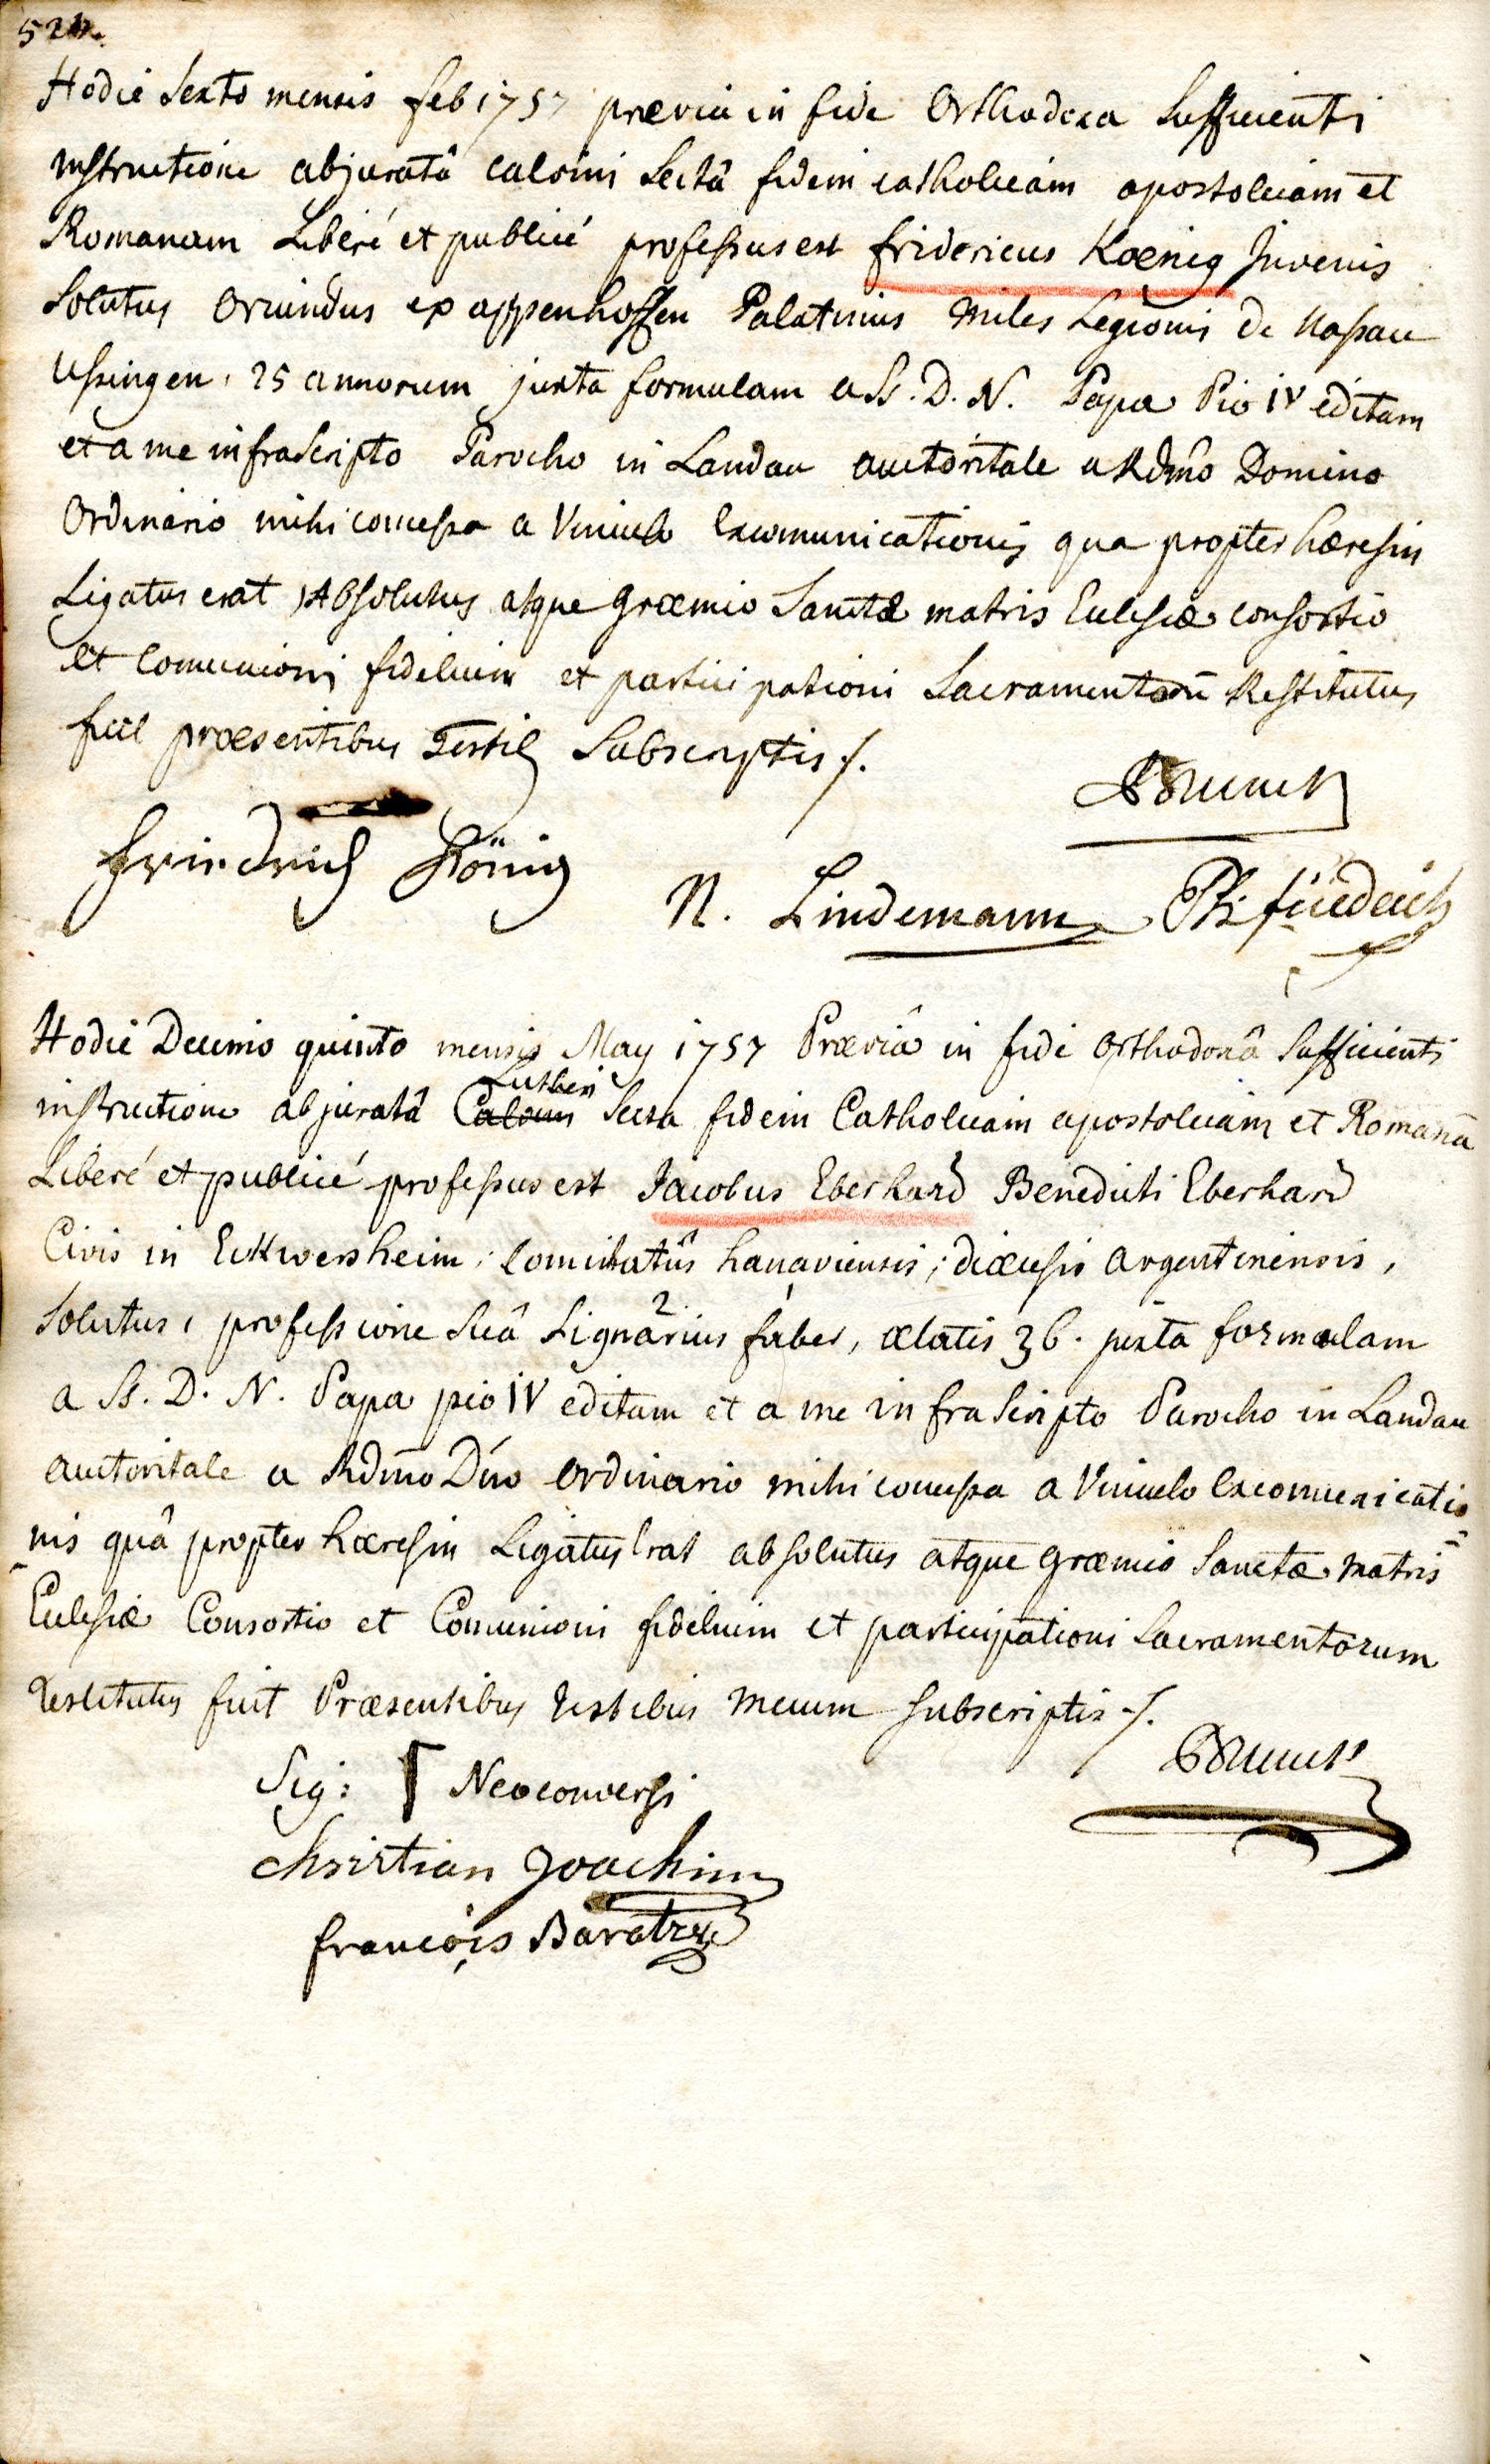 Hodie Sexto mensis feb 1757 prævia in fide Orthodoxa Sufficienti
instructione abjuratâ calvini Sectâ fidem catholicam apostolicam et
Romanam Liberé et publicé professus est fridericus Kœnig Juvenis
Solutus Oriundus ex appenhoffen Palatinus Miles Legionis de Nassau
Ussingen, 25 annorum juxta formulam a Ss. D. N. Papa Pio IV editam
et a me infraScripto Parocho in Landau auctoritate a Rdm̄o Domino
Ordinario mihi concessa a Vinculo Excomunicationis qua propter hæresin
Ligatus erat, Absolutus atque Græmio Sanctæ matris Eclesiæ consortio
et Comunioni fidelium et participationi Sacramentorū Restitutus
fuit præsentibus Testib Subscriptis /.
Friedrich König
N. Lindemann Ph: friedrich
Hodie Decimo quinto mensis May 1757 Præviâ in fide Orthodoxâ Sufficienti
instructione abjuratâ Calvini Lutheri Secta fidem Catholicam apostolicam et Romanā
Liberé et publicé professus est Jacobus Eberhard Benedicti Eberhard
Civis in Eckwersheim, Comitatûs hanaviensis, diœcesis Argentinensis,
Solutus, professione Suâ Lignarius 2 faber, ætatis 36. juxta formulam
a Ss. D. N. Papa pio IV editam et a me infraScripto Parocho in Landau
auctoritate a Rdm̄o Dn̄o Ordinario mihi concessa a Vinculo Excomunicatio=
=nis quâ propter hæresin Ligatus Erat absolutus atque græmio Sanctæ Matris
Eclesiæ Consortio et Comunioni fidelium et participationi Sacramentorum
Restitutus fuit Præsentibus testibus Mecum Subscriptis /.
Sig: Γ Neoconversi
Christian Joachim
françois